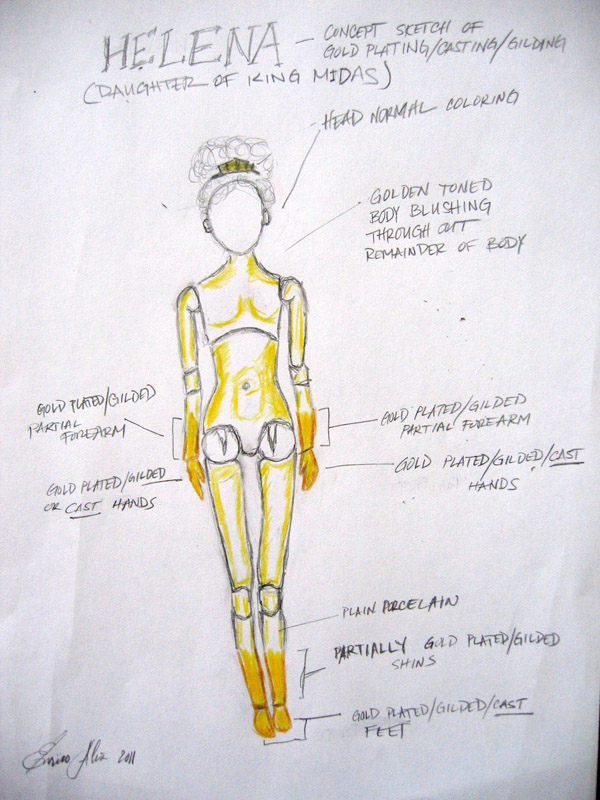 HELENA – CONCEPT SKETCH OF
GOLD PLATING/CASTING/GILDING
(DAUGHTER OF KING MIDAS)
HEAD NORMAL COLORING
GOLDEN TONED
BODY BLUSHING
THROUGH OUT
REMAINDER OF BODY
GOLD PLATED/GILDED
PARTIAL FOREARM
GOLD PLATED/GILDED
PARTIAL FOREARM
GOLD PLATED/GILDED
OR CAST HANDS
GOLD PLATED/GILDED/CAST
HANDS
PLAIN PORCELAIN
PARTIALLY GOLD PLATED/GILDED
SHINS
GOLD PLATED/GILDED/CAST
FEET
2011